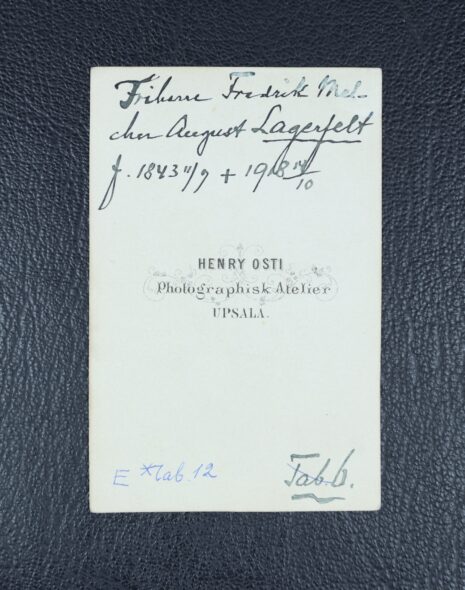 Friherre Fredrik Mel-
cher August Lagerfelt
f. 1843 11/9 + 1918 14/10
HENRY OSTI
Photographisk Atelier
UPSALA.
E *Tab. 12
Tab. 6.